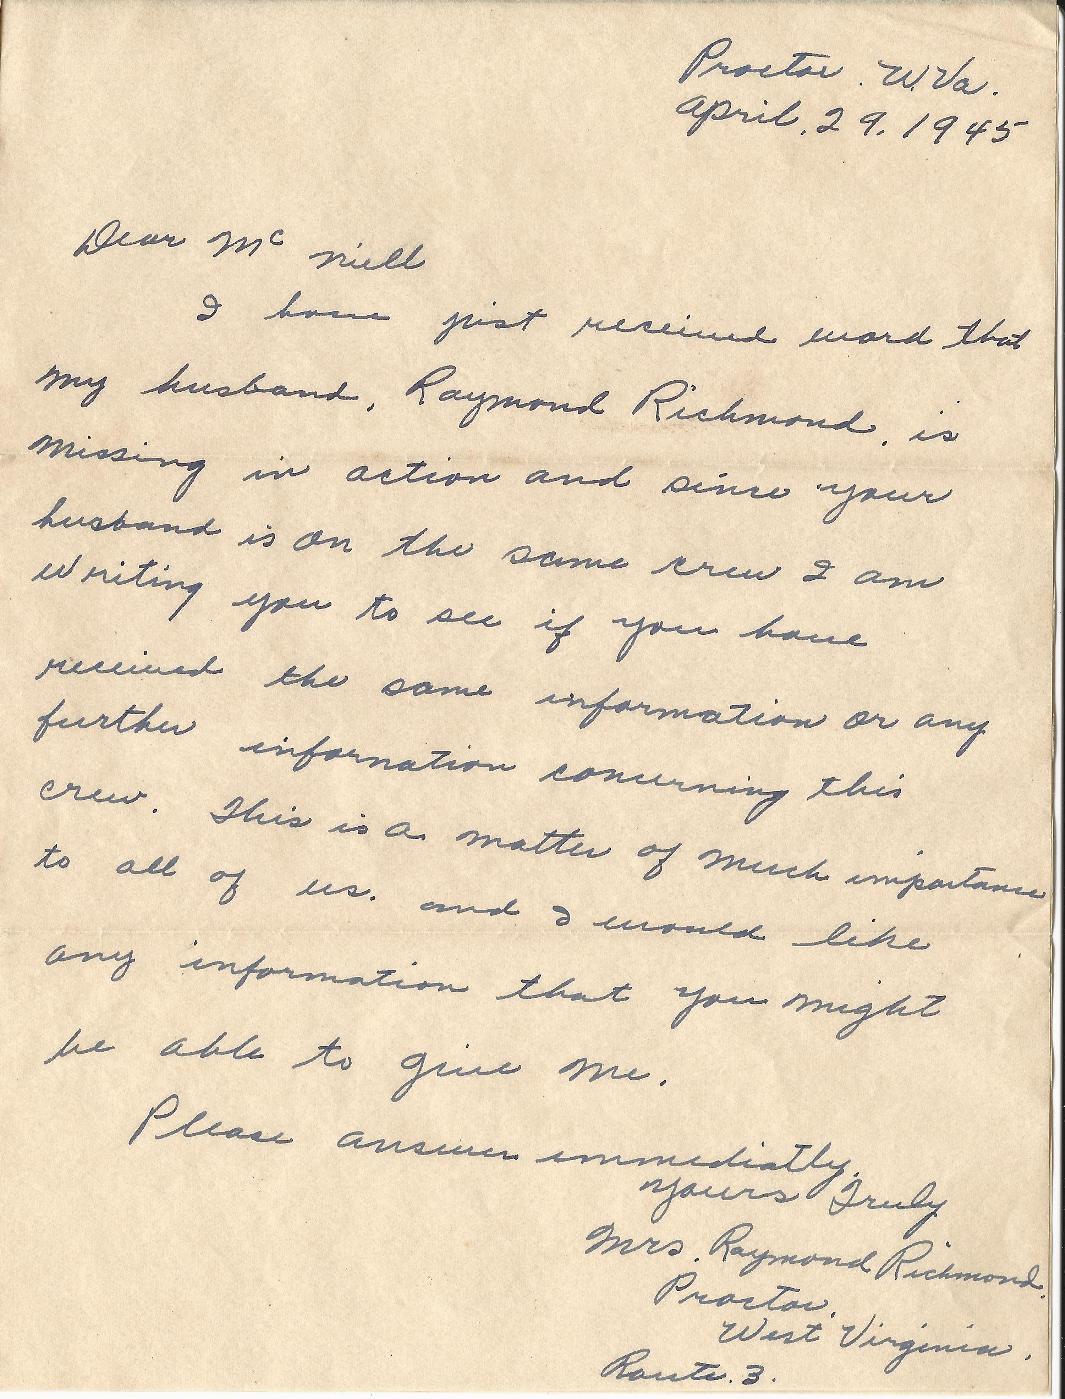 Proctor. W.Va.
April. 29. 1945
Dear Mc niell
I have just received word that
my husband, Raymond Richmond, is
missing in action and since your
husband is on the same crew I am
writing you to see if you have
received the same information or any
further information concerning this
crew. This is a matter of much importance
to all of us. and I would like
any information that you might
be able to give me.
Please answer immediatly.
Yours Truly
Mrs. Raymond Richmond.
Proctor.
West Virginia.
Route. 3.